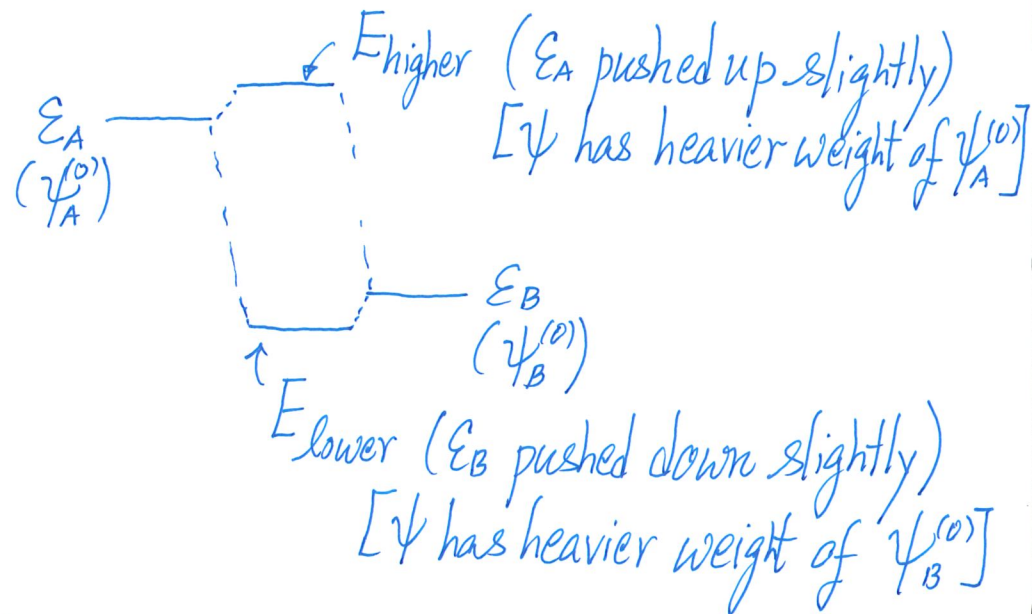 E_higher (ε_A pushed up slightly)
ε_A
[ψ has heavier weight of ψ_A^(0)]
(ψ_A^(0))
ε_B
(ψ_B^(0))
E_lower (ε_B pushed down slightly)
[ψ has heavier weight of ψ_B^(0)]